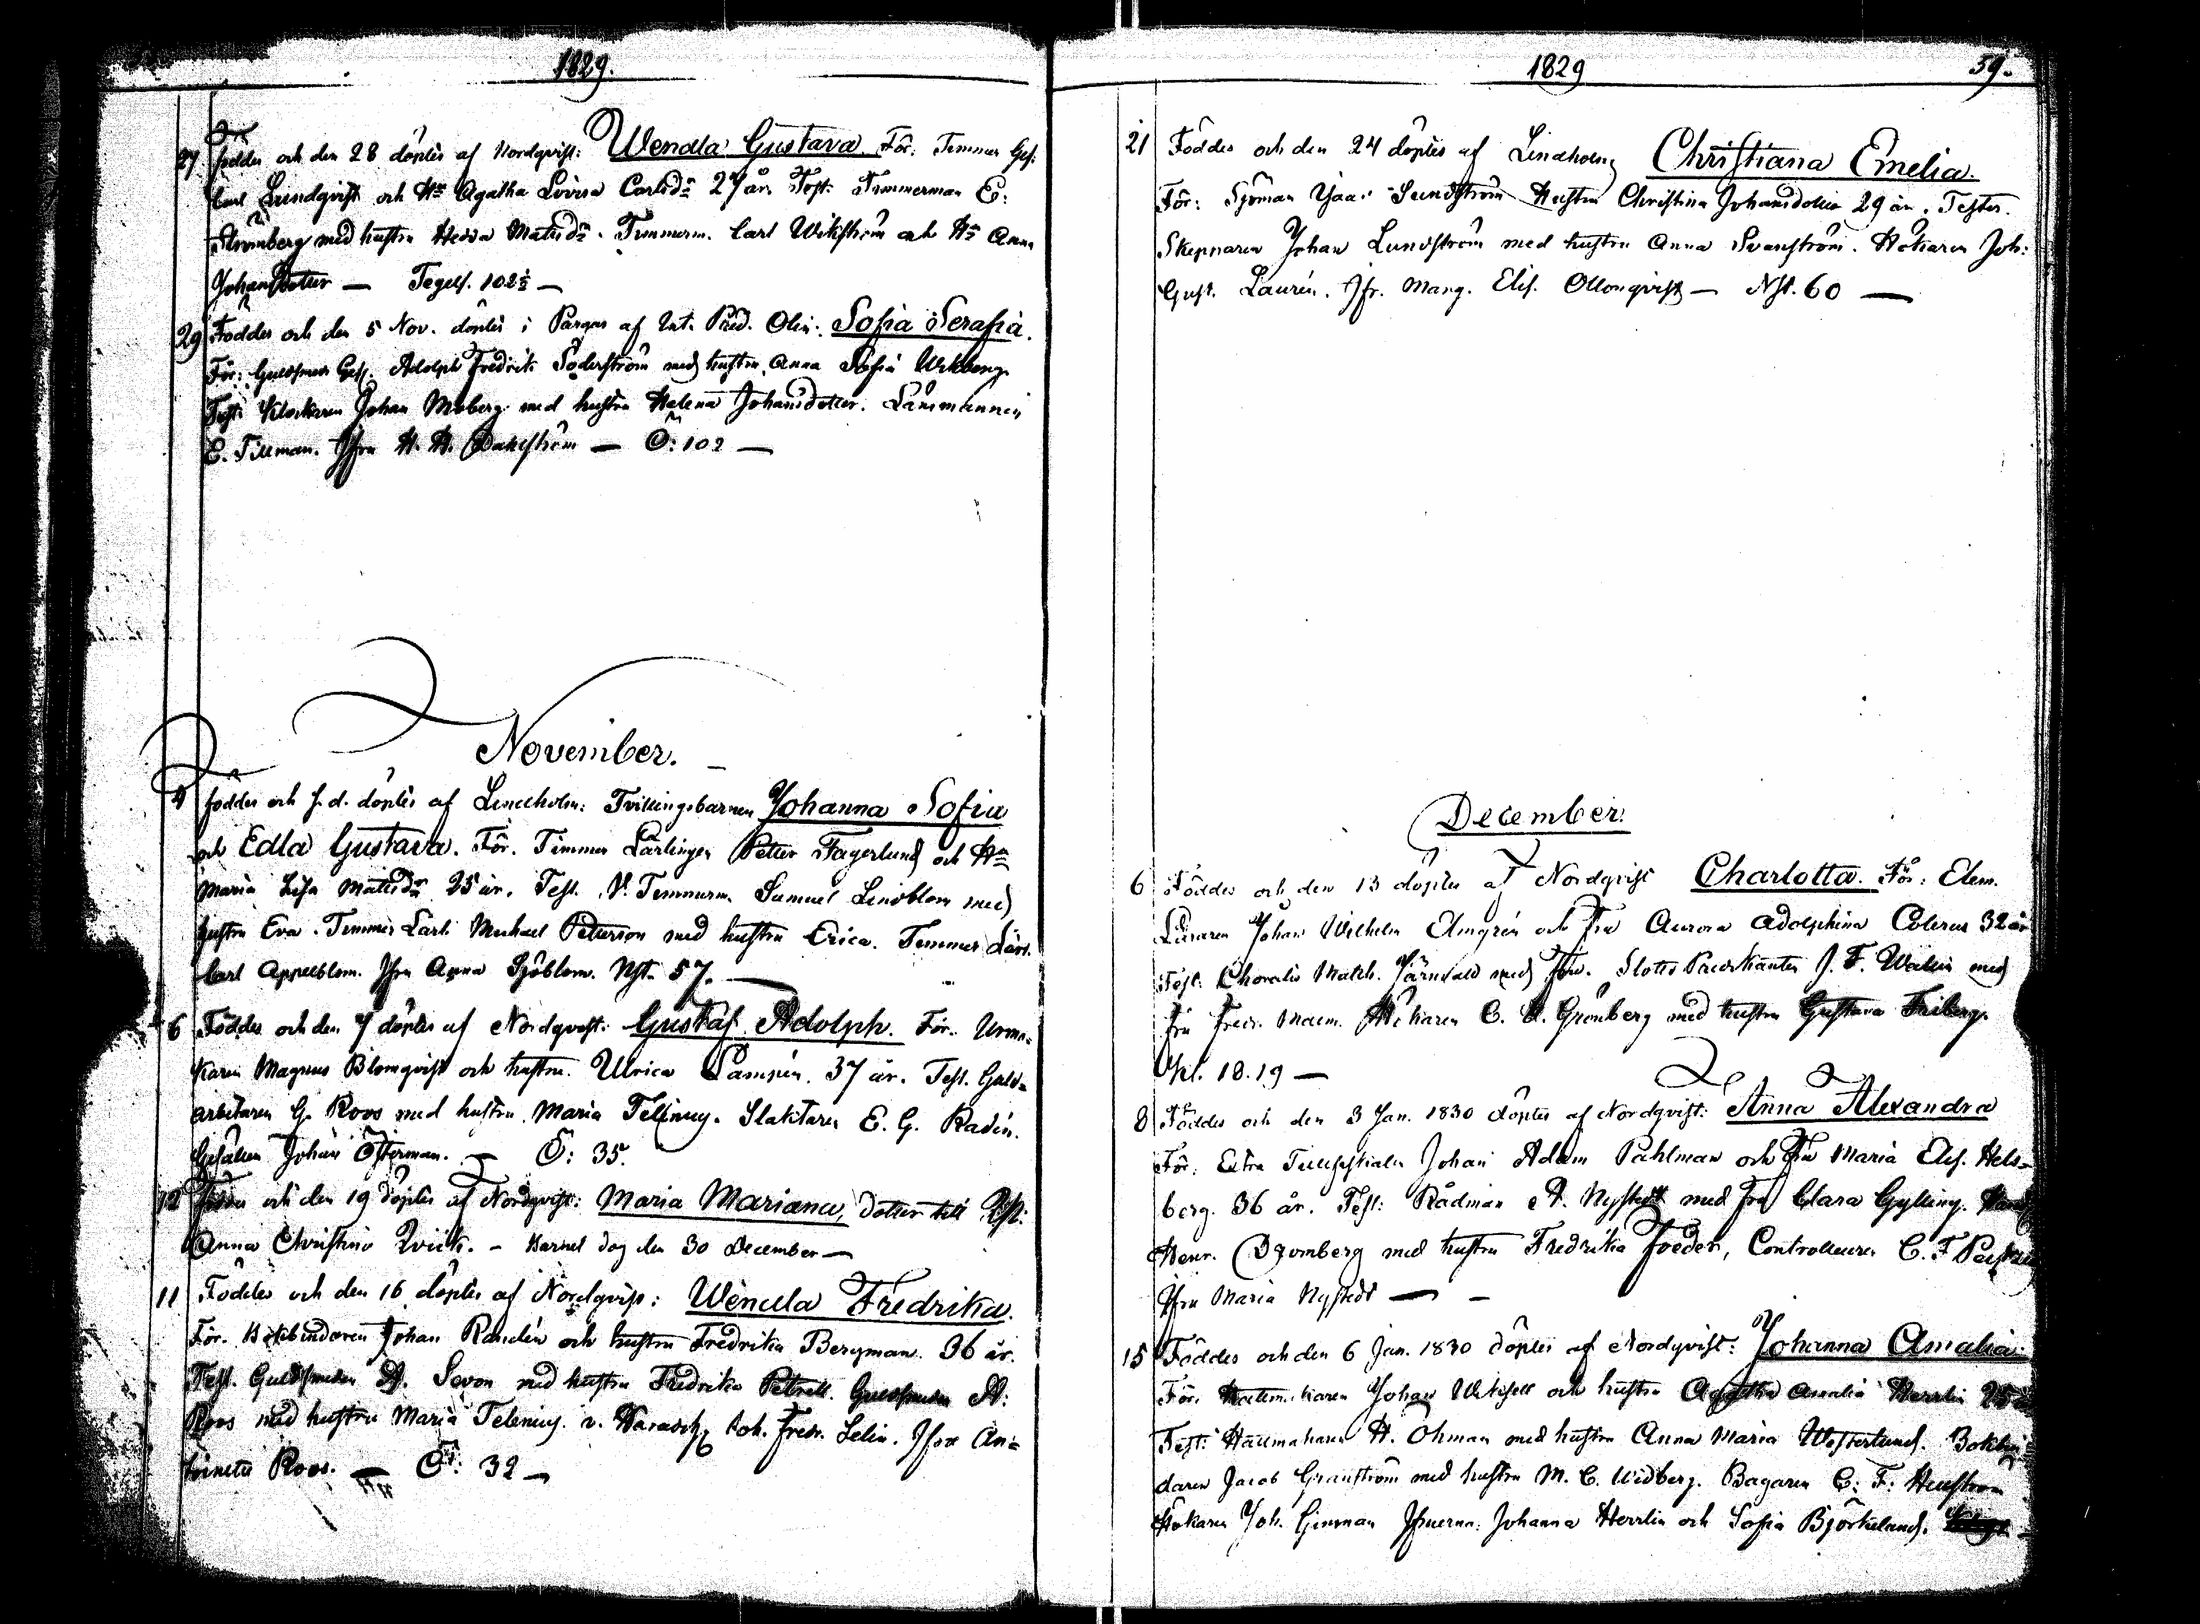 1829.
27 föddes och den 28 döptes af Nordqvist: Wendla Gustava. För. Timmer Ges:
Carl Lundqvist och Hu Agatha Lovisa Carlsdr 27 år. Test: Timmerman E:
Strömberg med hustru Hedda Matsdr. Timmerm. Carl Wikström och Hu Anna
Johansdotter — Tegels. 102½ —
29 Föddes och den 5 Nov. döptes i Pargas af Ext. Pred. Olin: Sofia Serafia.
För: Guldsmeds Ges. Adolph Fredrik Söderström med hustru Anna Sofia Wikberg.
Test: Klockaren Johan Moberg med hustru Helena Johansdotter. Länsmannen
E. Tillman. Jfru H. H. Dahlström — Ö: 102 —
November.
4 föddes och s. d. döptes af Lindholm: Tvillingsbarnen Johanna Sofia
och Edla Gustava. För. Timmer Lärlingen Petter Fagerlund och Hu
Maria Lisa Matsdr 25 år. Test. V. Timmerm. Samuel Lindblom med
hustru Eva. Timmer Lärl. Michael Petterson med hustru Erica. Timmer Lärl.
Carl Appelblom. Jfru Anna Sjöblom. Nst. 57. —
6 Föddes och den 7 döptes af Nordqvist: Gustaf Adolph. För. Urma-
karen Magnus Blomqvist och hustru Ulrica Lampén. 37 år. Test. Guld-
arbetaren G. Roos med hustru Maria Telenius. Slaktaren E. G. Radén.
Gesällen Johan Österman. — Ö: 35.
12 och den 19 döptes af Nordqvist: Maria Mariana, dotter till
Anna Christina Qvick. – Barnet dog den 30 December —
11 Föddes och den 16 döptes af Nordqvist: Wendla Fredrika.
För. Bokbindaren Johan Randelin och hustru Fredrika Bergman. 36 år.
Test. Guldsmeden A. Sevon med hustru Fredrika Petrell. Guldsmeden
Roos med hustru Maria Telenius. Joh. Fredr. Selin. Jfru An-
toinette Roos. — Ö: 32 —
1829
59.
21 Föddes och den 24 döptes af Lindholm Christiana Emelia.
För: Sjöman Isaac Sundström Hustru Christina Johansdotter 29 år. Test:
Skepparen Johan Lundström med hustru Anna Svanström. Hökaren Joh:
Gust. Laurén. Jfr. Marg. Elis. Ollonqvist — Nst. 60 —
December.
6 Föddes och den 13 döptes af Nordqvist Charlotta. För: Elem.
Läraren Johan Wilhelm Elmgrén och Fru Aurora Adolphina Colerus 32 år
Test: med Fru. J. F. Wallin med
Fru Fredr. Malm. Hökaren C. A. Grönberg med hustru Gustava Friberg.
Kl. 18.19 —
8 Föddes och den 3 Jan. 1830 döptes af Nordqvist: Anna Alexandra
För: Extra Johan Adam Pahlman och Fru Maria Elis. Hels-
berg. 36 år. Test: Rådman A. Nystedt med Fru Clara Gylling.
Henr. Bromberg med hustru Fredrika Foeder, Controlleuren C. F.
Jfru Maria Nystedt — –
15 Föddes och den 6 Jan. 1830 döptes af Nordqvist: Johanna Amalia.
För. Johan och hustru Agatha Amalia Herrlin 25
Test: H. Öhman med hustru Anna Maria Westerlund. Bokbin-
daren Jacob Granström med hustru M. C. Widberg. Bagaren C: F: Hellström
Hökaren Joh. Ginman Jfruerna: Johanna Herrlin och Sofia Björkelund.